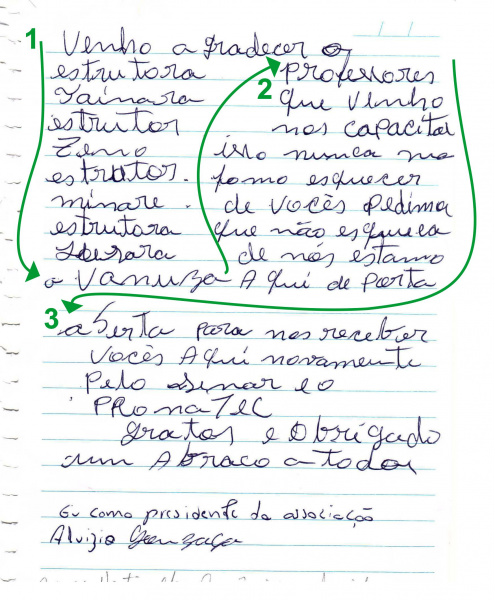 1
Venho a gradecer o
estrutora
Tainara
estrutor
Zeno
estrutor.
minare.
estrutora
a Vanuza
2
professores
que vinho
nos capacital
isso nunca mo
fomo esquecer
de vocês pedima
que não esqueca
de nós estamo
Aqui de porta
3
aberta para nos receber
vocês Aqui novamente
Pelo senar e o
PRonaTEC
gratos e obrigado
um Abraco a todos
Eu como presidente da associação
Aluizio Gonzaga